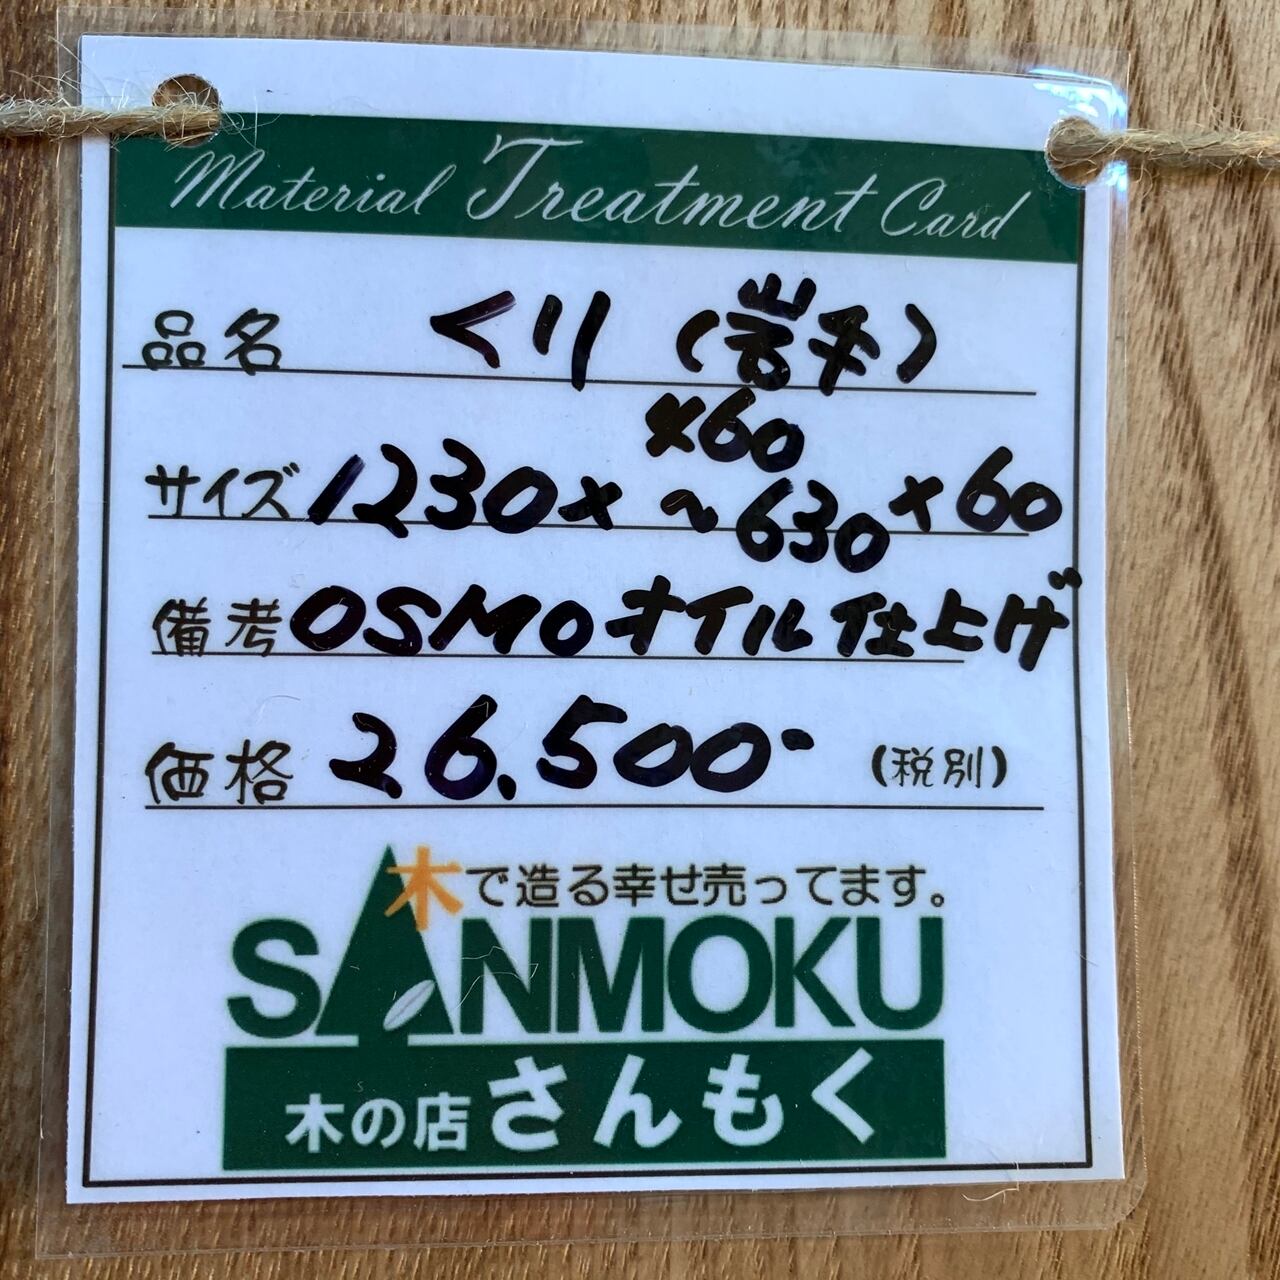 Material Treatment Card
品名 くり（岩手）
×60
サイズ 1230×～630×60
備考 OSMOオイル仕上げ
価格 26.500- （税別）
木で造る幸せ売ってます。
SANMOKU
木の店 さんもく